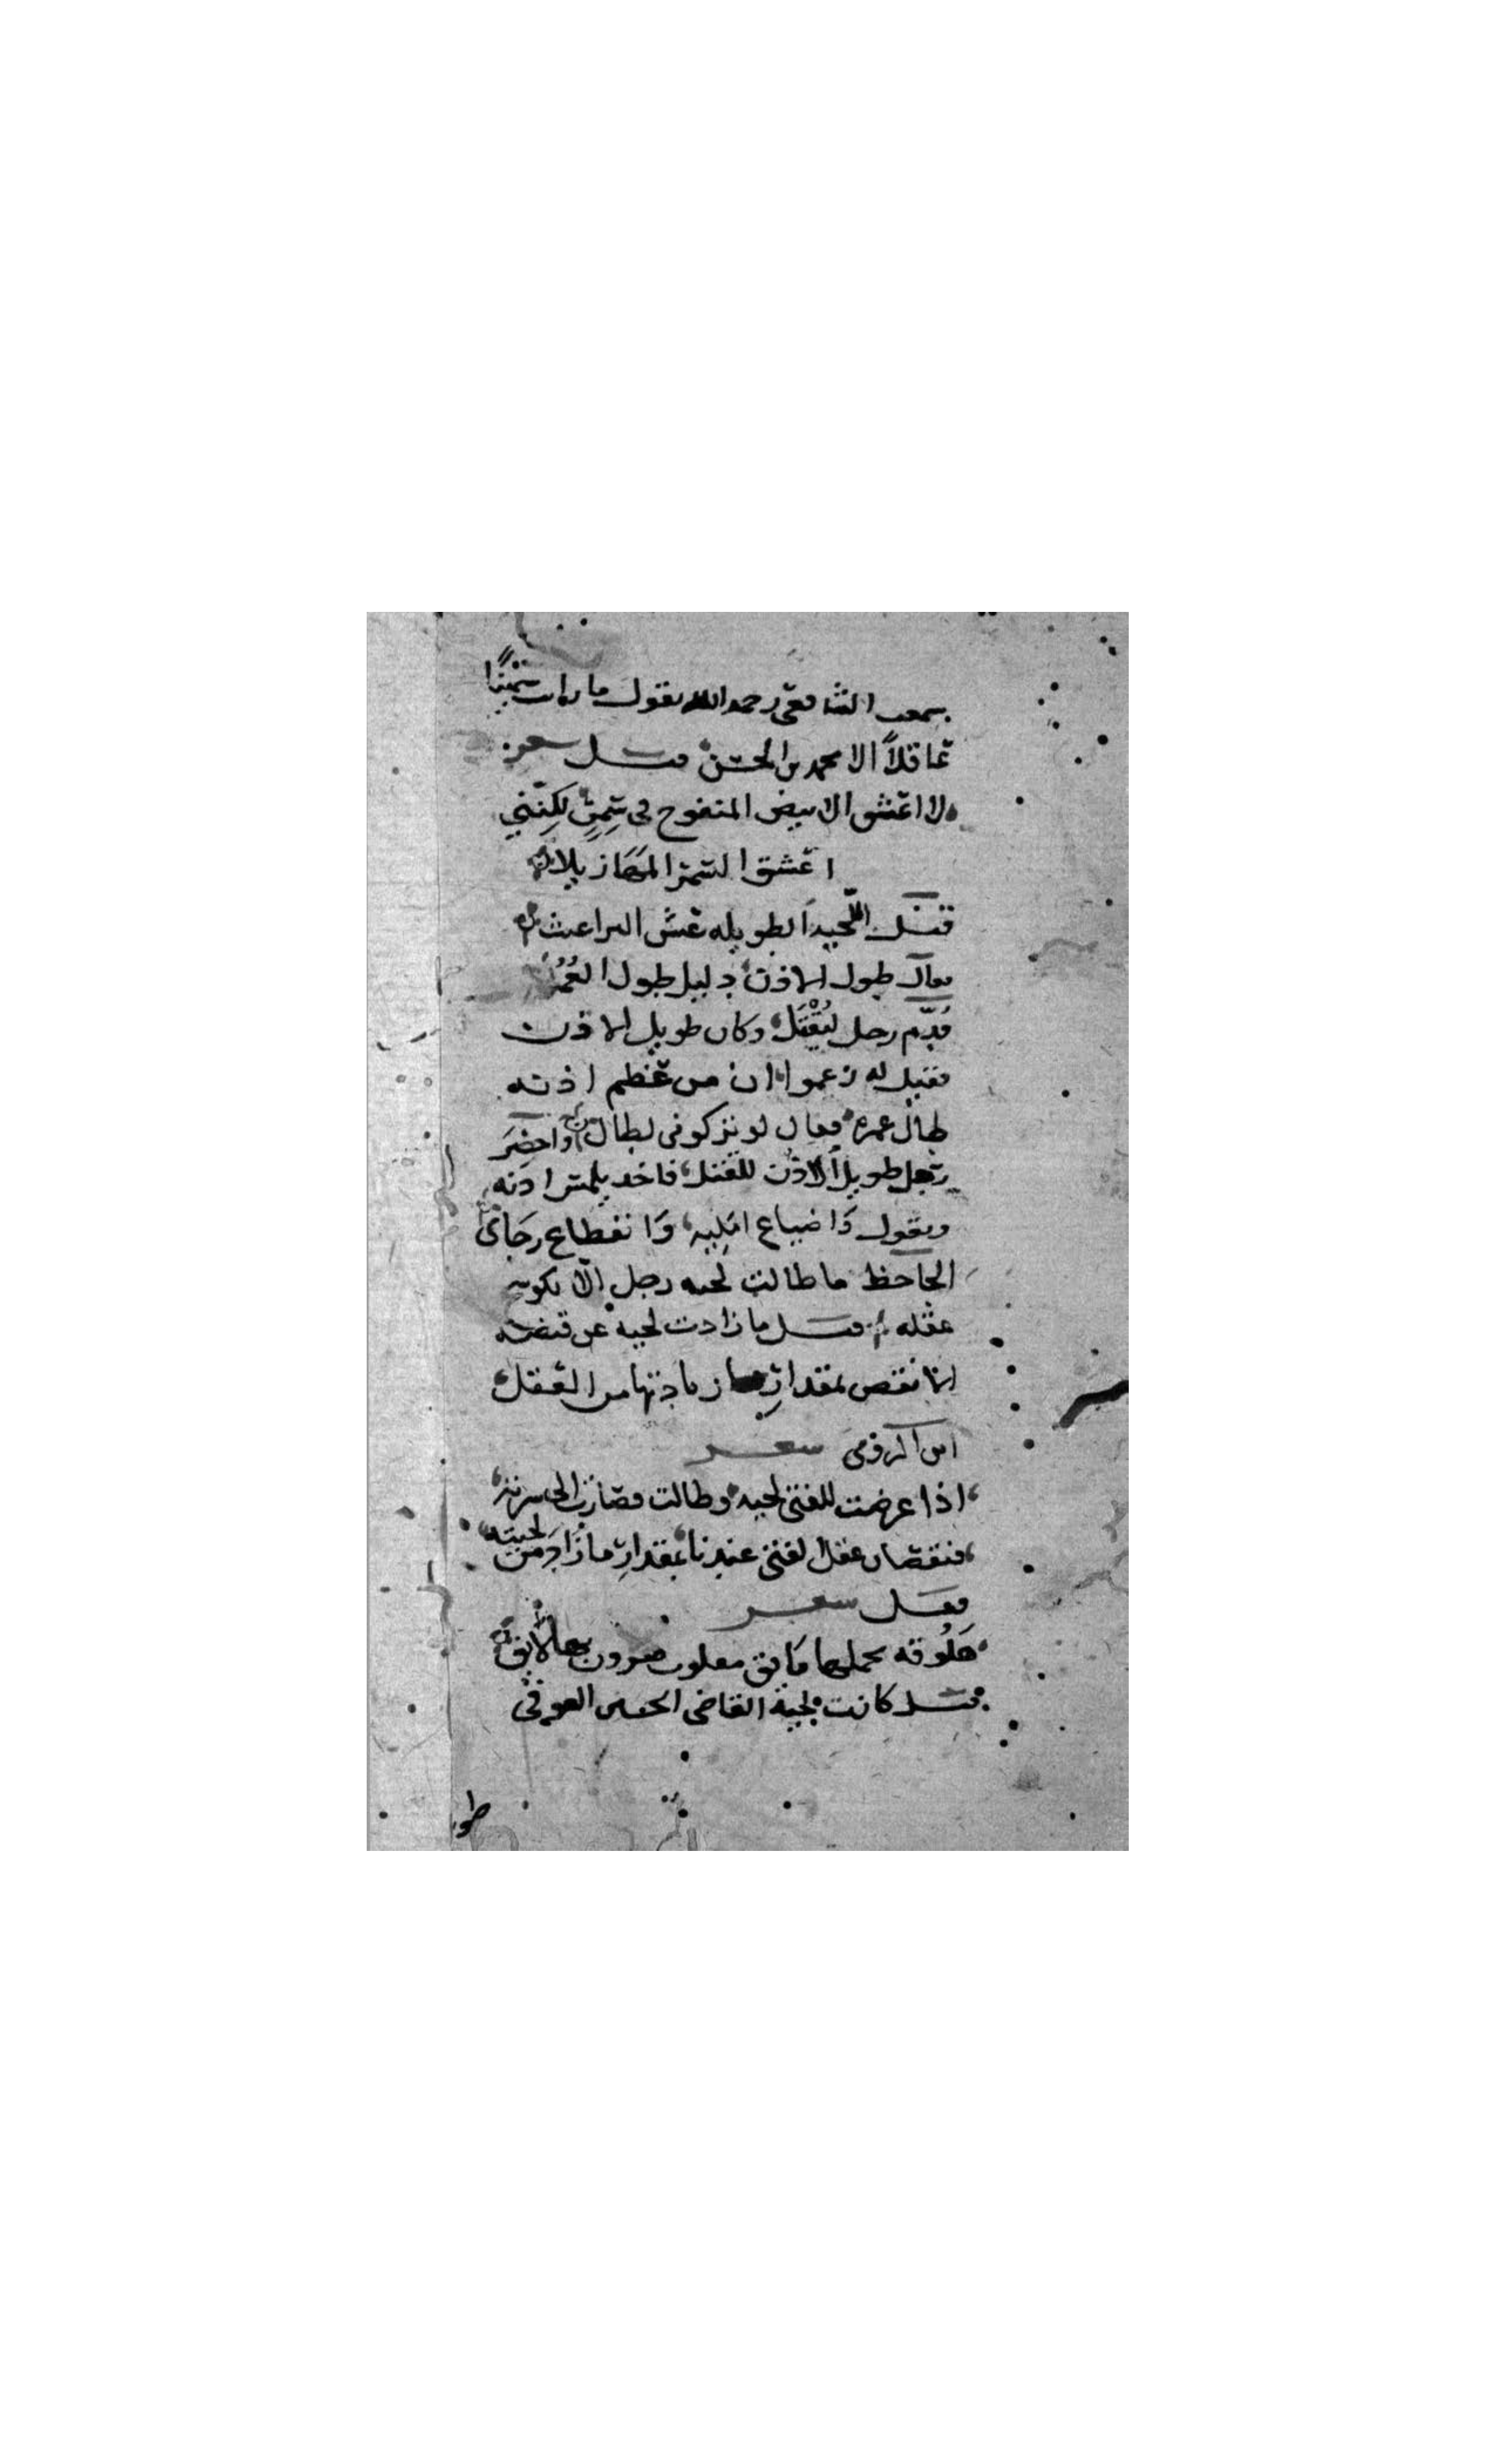 سمعت الشافعي رحمه الله يقول ما رايت سمينًا
عاقلاً الا محمد بن الحسن قيل شعر
لا اعشق الابيض المنفوخ من سمن لكنني
اعشق السمر المهازيلا
قيل اللحية الطويلة عش البراغيث
يقال طول الاذن دليل طول العُمُر
قُدّم رجل ليُقْتَل وكان طويل الاذن
فقيل له زعموا ان من عظم اذنه
طال عمره فقال لو تركوني لطال واحضِرَ
رجل طويل الاذن للقتل فاخذ يلمس اذنه
ويقول وَا ضياع املِيه وَا نقطاع رجَاي
الجاحظ ما طالت لحية رجل الّا تكوسج
عقله قيل ما زادت لحية عن قبضة
الا نقص بمقدارِ زيادتها من العقل
ابن الرومي شعر
اذا عرضت للفتى لحية وطالت فصارت الى سرته
فنقصان عقل الفتى عندنا بمقدارِ ما زادَ من لحيته
قيل شعر
هَلُّوفة يحملها مَائق
قيل كانت لحية القاضي الحسين العوفي
طو